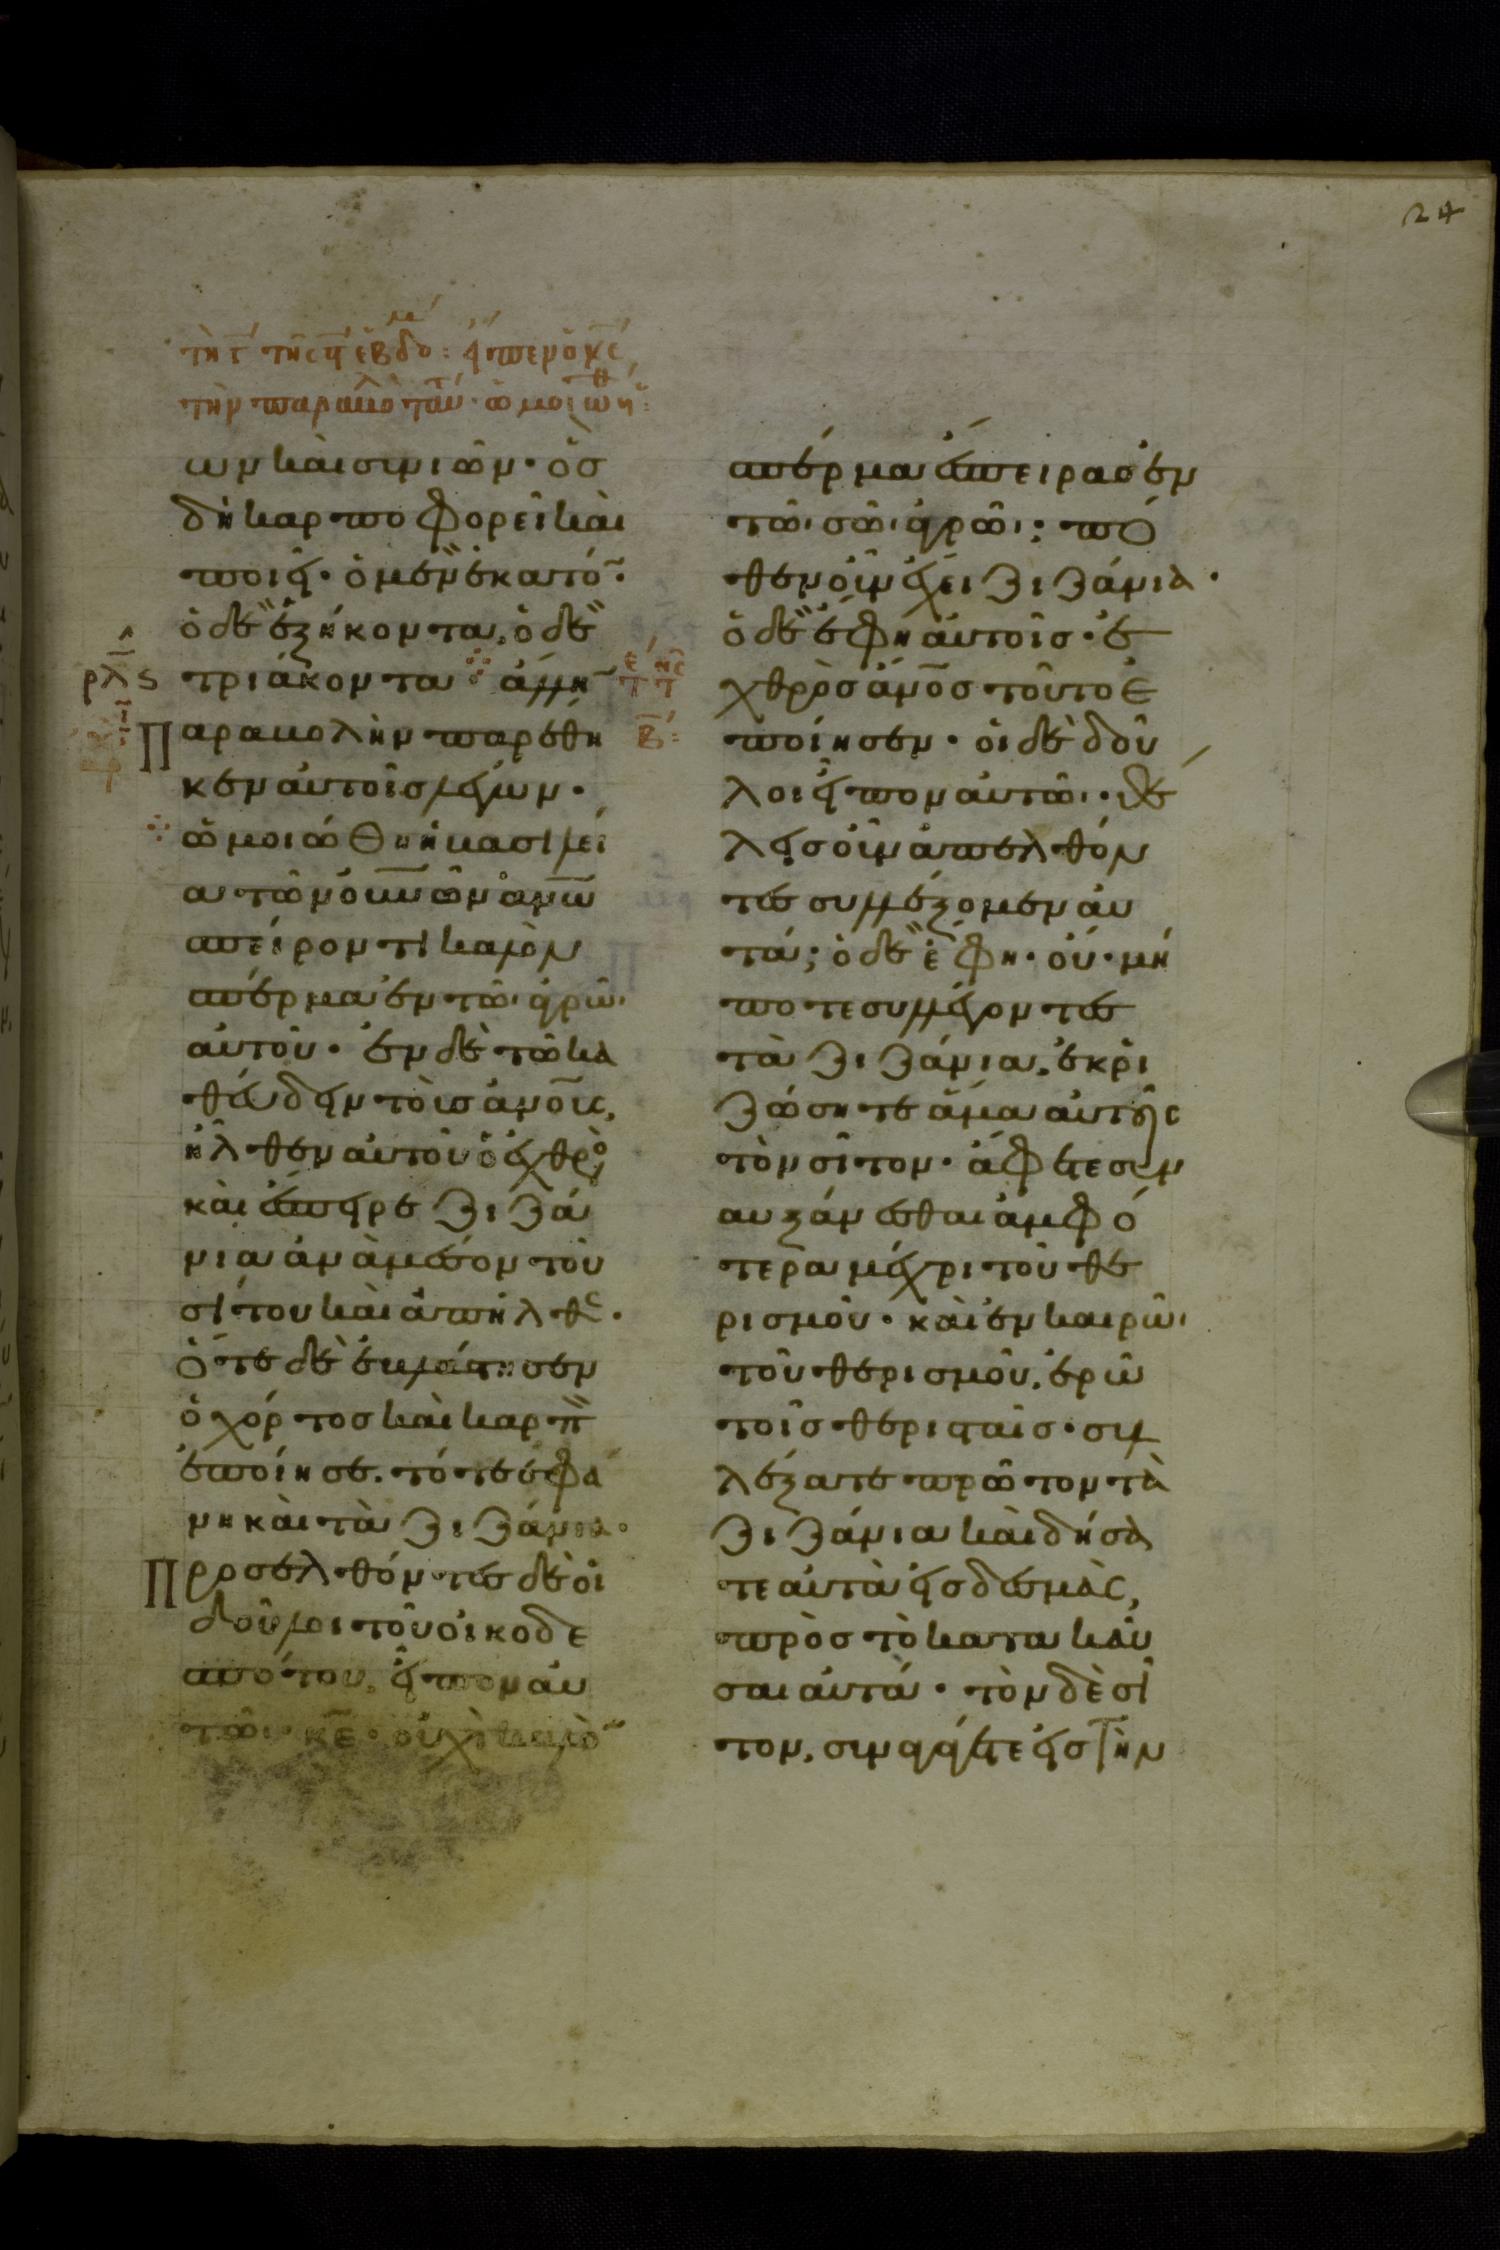 24
τῆ γ τῆς ϛ ἑβδο: εἶπεν ὁ κς
τὴν παραβολ ταύτ· ὡμοιώθη:
ων καὶ συνιῶν· ὃς
δὴ καρποφορεῖ καὶ
ποιεῖ· ὁ μὲν ἑκατό̅·
ὁ δὲ ἑξήκοντα, ὁ δὲ
ρλς τριάκοντα ἄλλη̅
Παραβολὴν παρέθη
κεν αὐτοῖς λέγων·
ὡμοιώθη ἡ βασιλεί
α τῶν οὐν̅ῶν ἀν̅ω
σπείροντι καλὸν
σπέρμα ἐν τῶι ἀγρῶι
αὐτοῦ· ἐν δὲ τῶ κα
θεύδειν τοὺς ἀν̅ους,
ἦλθεν αὐτοῦ ὁ ἐχθρὸς
καὶ ἔσπειρε ζιζά
νια ἀνὰ μέσον τοῦ
σίτου καὶ ἀπῆλθεν·
Ὅτε δὲ ἐβλάστησεν
ὁ χόρτος καὶ καρπὸν
ἐποίησε. τότε ἐφά
νη καὶ τὰ ζιζάνια·
Προσελθόντες δὲ οἱ
δοῦλοι τοῦ οἰκοδε
σπότου, εἶπον αὐ
τῶι· κ̅ε· οὐχὶ καλὸ̅
σπέρμα ἔσπειρας ἐν
τῶι σῶι ἀγρῶι; πό
θεν οὖν ἔχει ζιζάνια·
ὁ δὲ ἔφη αὐτοῖς· ἐ
χθρὸς ἄν̅ος τοῦτο ἐ
ποίησεν· οἱ δὲ δοῦ
λοι εἶπον αὐτῶι· θέ
λεις οὖν ἀπελθόν
τες συλλέξομεν αὐ
τά; ὁ δὲ ἔφη· οὔ· μή
ποτε συλλέγοντες
τὰ ζιζάνια, ἐκρι
ζώσητε ἅμα αὐτοῖς
τὸν σῖτον· ἄφετε συν
αυξάνεσθαι ἀμφό
τερα μέχρι τοῦ θε
ρισμοῦ· καὶ ἐν καιρῶι
τοῦ θερισμοῦ, ἐρῶ
τοῖς θερισταῖς· συλ
λέξατε πρῶτον τὰ
ζιζάνια καὶ δήσα
τε αὐτὰ εἰς δέσμας,
πρὸς τὸ κατακαῦ
σαι αὐτά· τὸν δὲ σῖ
τον, συναγάγετε εἰς τὴν